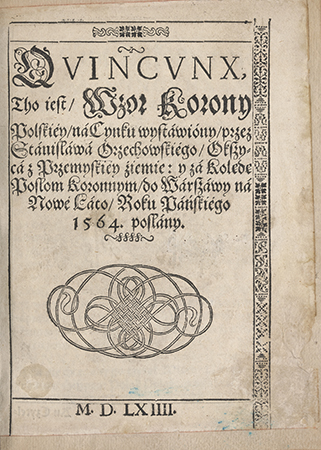 QVINCVNX,
Tho ieſt/ Wzor Korony
Polſkiéy/ ná Cynku wyſtáwióny/ przez
Stániſláwá Orzechowſkiégo/ Okſzy-
cá z Przemyſkiéy źiemie: y zá Kolędę
Poſłom Koronnym/ do Wárſzáwy ná
Nowé Láto/ Roku Páńſkiégo
1564. poſłány.
M. D. LXIIII.